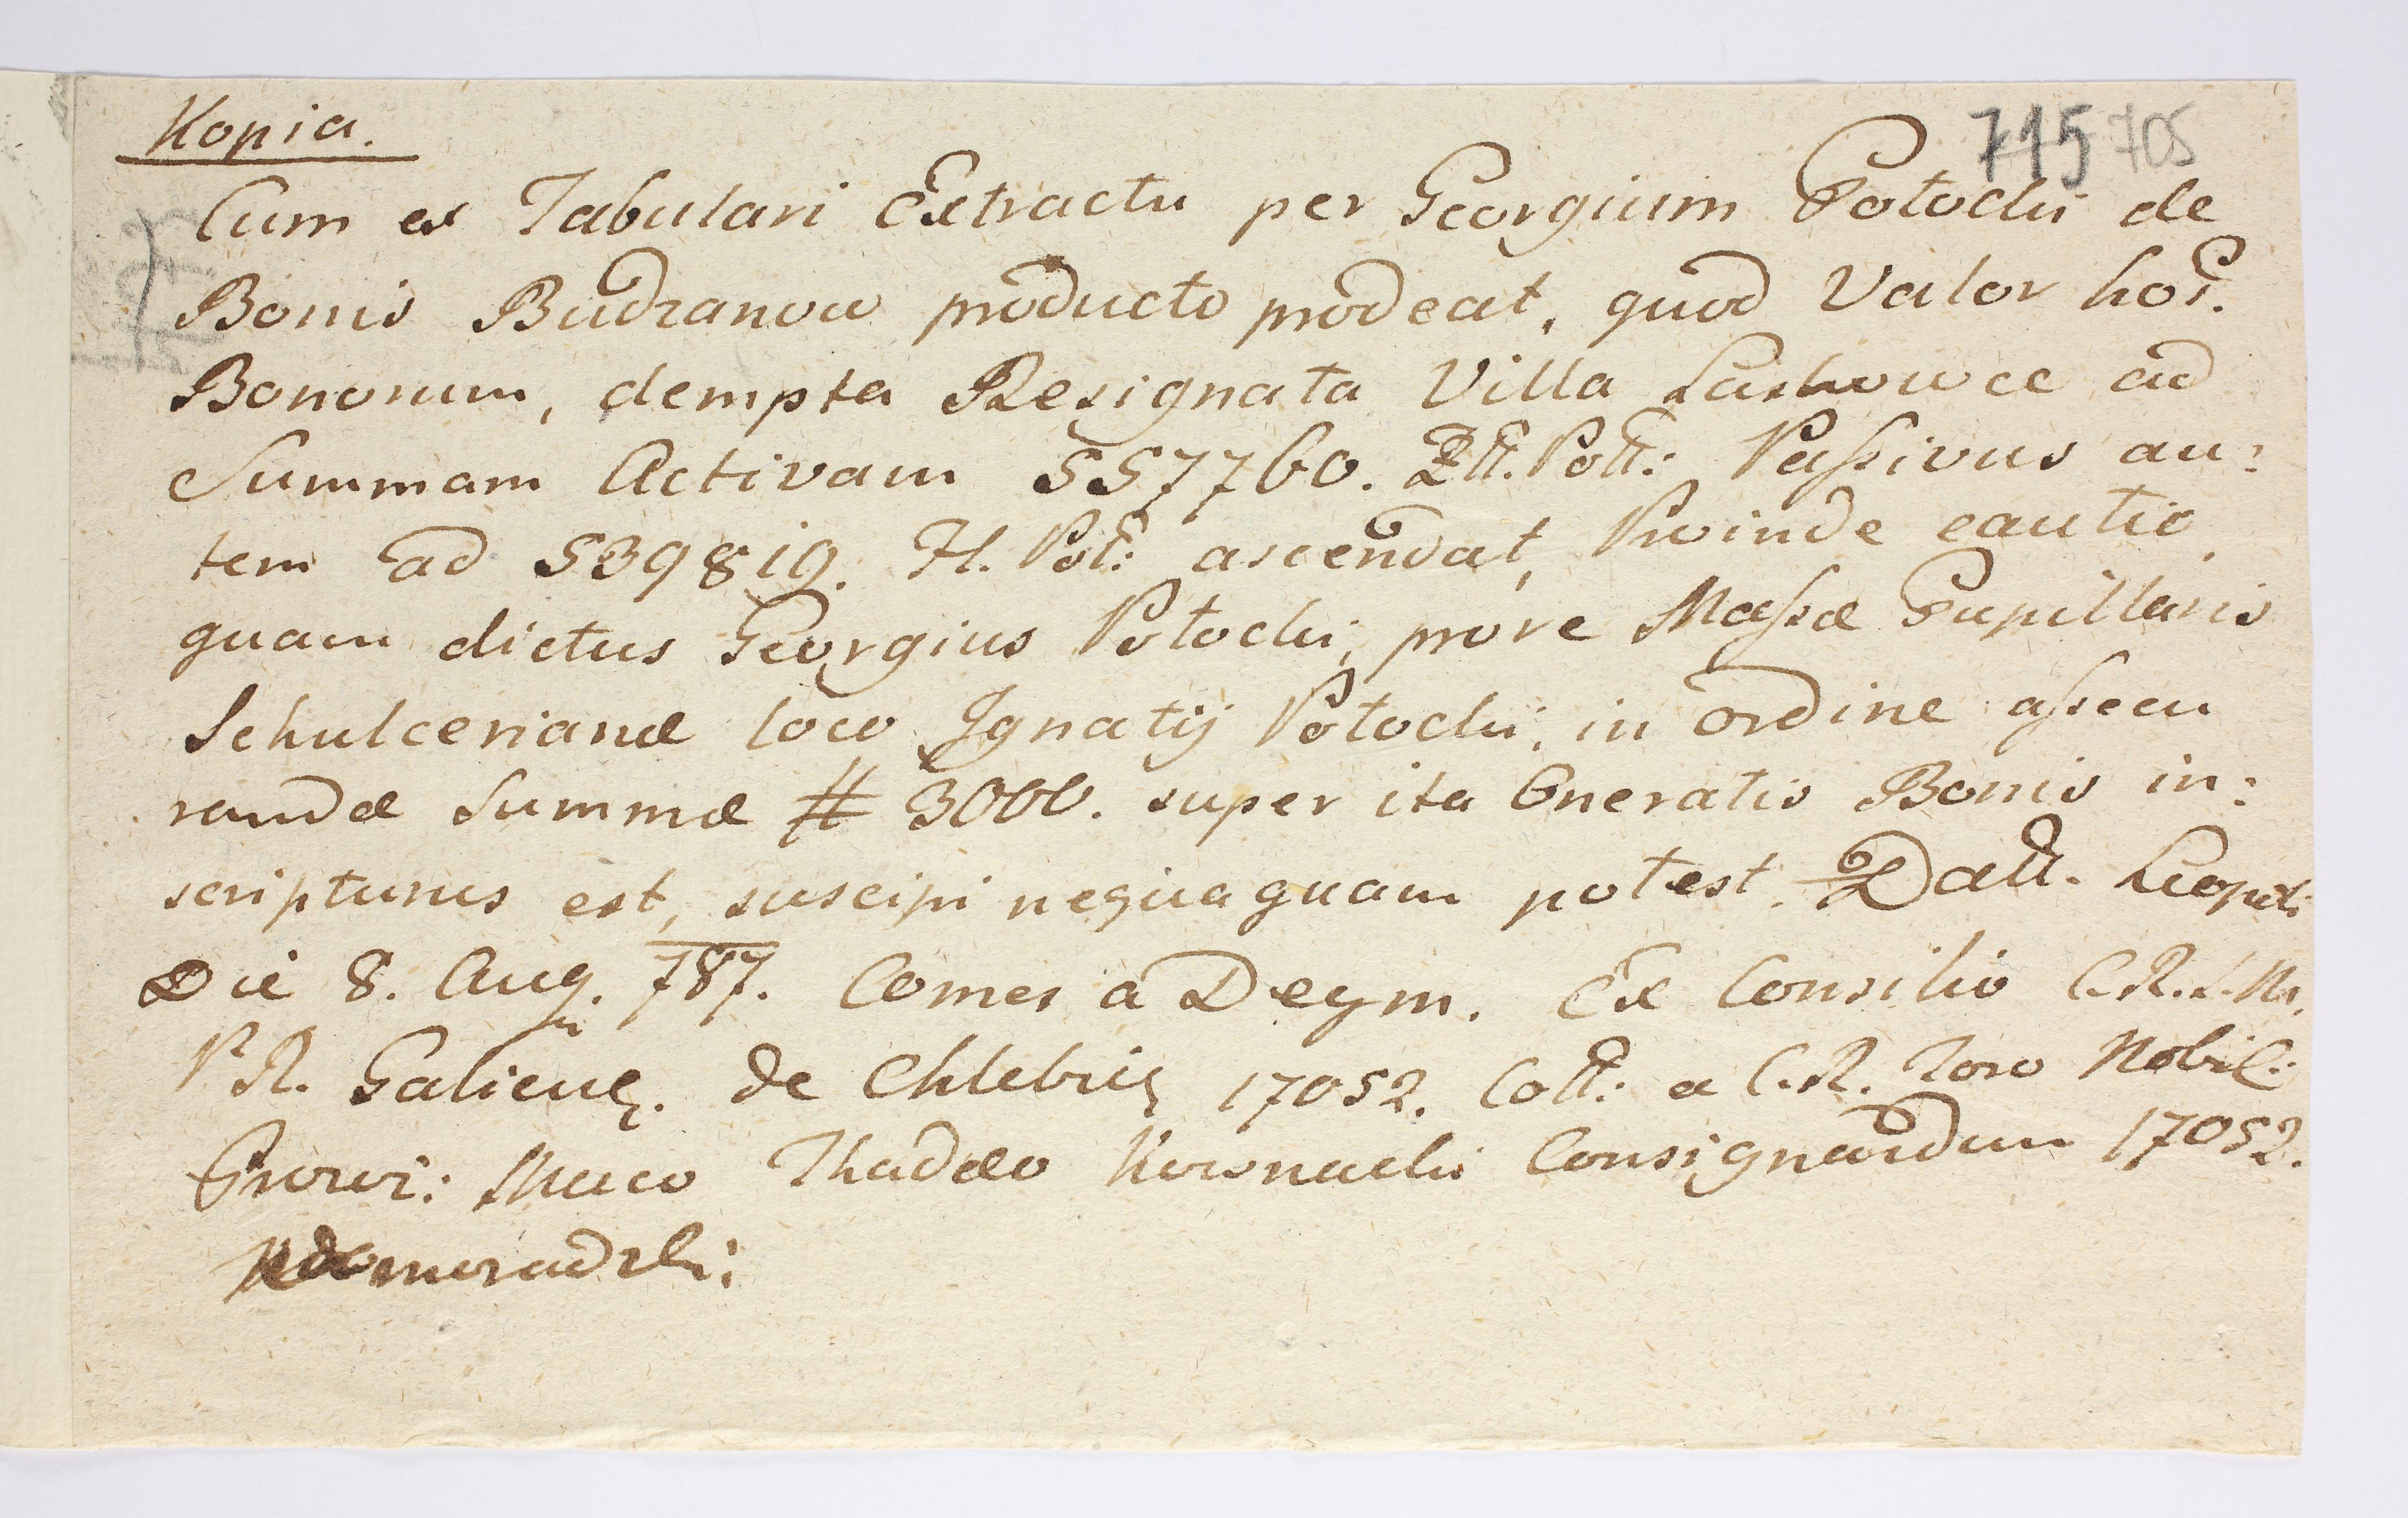 Kopia.
715 705
Cum ex Tabulari Extractu per Georgium Potocki de
Bonis Budzanow producto prodeat, quod Valor hor.
Bonorum, dempta Resignata Villa Laskowce ad
Summam Activam 557760. Ztt. Pott: Passivus au:
tem ad 539819. Fl. Pol: ascendat, Proinde cautio,
quam dictus Georgius Potocki, pro re Massæ Pupillaris
Schulcerianæ loco Ignatij Potocki, in ordine assecu
randæ Summæ # 3000. super ita Oneratis Bonis in:
scripturus est, suscipi nequaquam potest. Datt. Leopoli
Die 8. Aug. 787. Comes a Deym. Ex Consilio C. R.
P R. Galicien. de 17052. Cott: a C. R. Foro Nobil:
Thadæo Consignandum 17052.